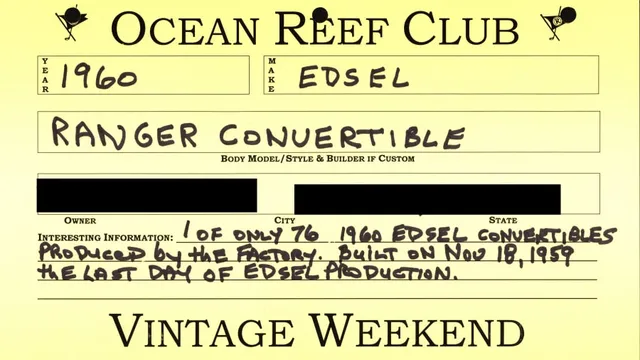 OCEAN REEF CLUB
YEAR 1960 MAKE EDSEL
RANGER CONVERTIBLE
BODY MODEL/STYLE & BUILDER IF CUSTOM
OWNER CITY STATE
INTERESTING INFORMATION: 1 OF ONLY 76 1960 EDSEL CONVERTIBLES
PRODUCED by the FACTORY. BUILT ON NOV 18, 1959
the LAST DAY OF EDSEL PRODUCTION.
VINTAGE WEEKEND